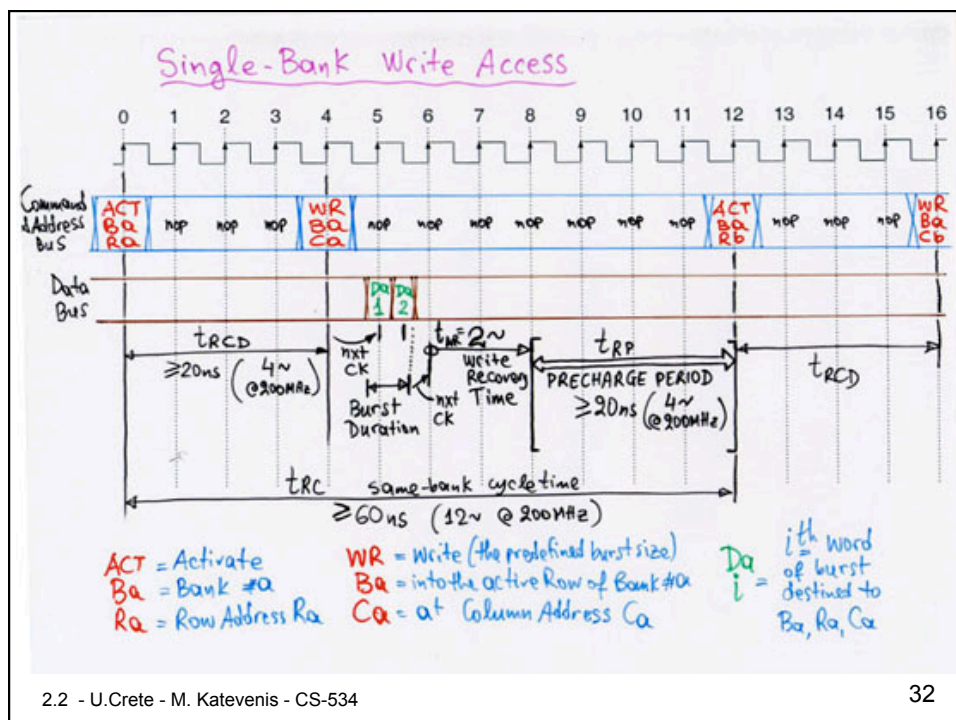 Single-Bank Write Access
0 1 2 3 4 5 6 7 8 9 10 11 12 13 14 15 16
Command
&Address
Bus
ACT
Ba
Ra
nop nop nop
WR
Ba
Ca
nop nop nop nop nop nop nop
ACT
Ba
Rb
nop nop nop
WR
Ba
Cb
Data
Bus
Da
1
Da
2
tRCD
≥20ns (4~ @200MHz)
nxt
CK
Burst
Duration
nxt
CK
tWR=2~
Write
Recovery
Time
tRP
PRECHARGE PERIOD
≥20ns (4~ @200MHz)
tRCD
tRC same-bank cycle time
≥60ns (12~ @ 200MHz)
ACT = Activate
Ba = Bank #a
Ra = Row Address Ra
WR = Write (the predefined burst size)
Ba = into the active Row of Bank #a
Ca = at Column Address Ca
Da
i
=
ith word
of burst
destined to
Ba, Ra, Ca
2.2 - U.Crete - M. Katevenis - CS-534
32